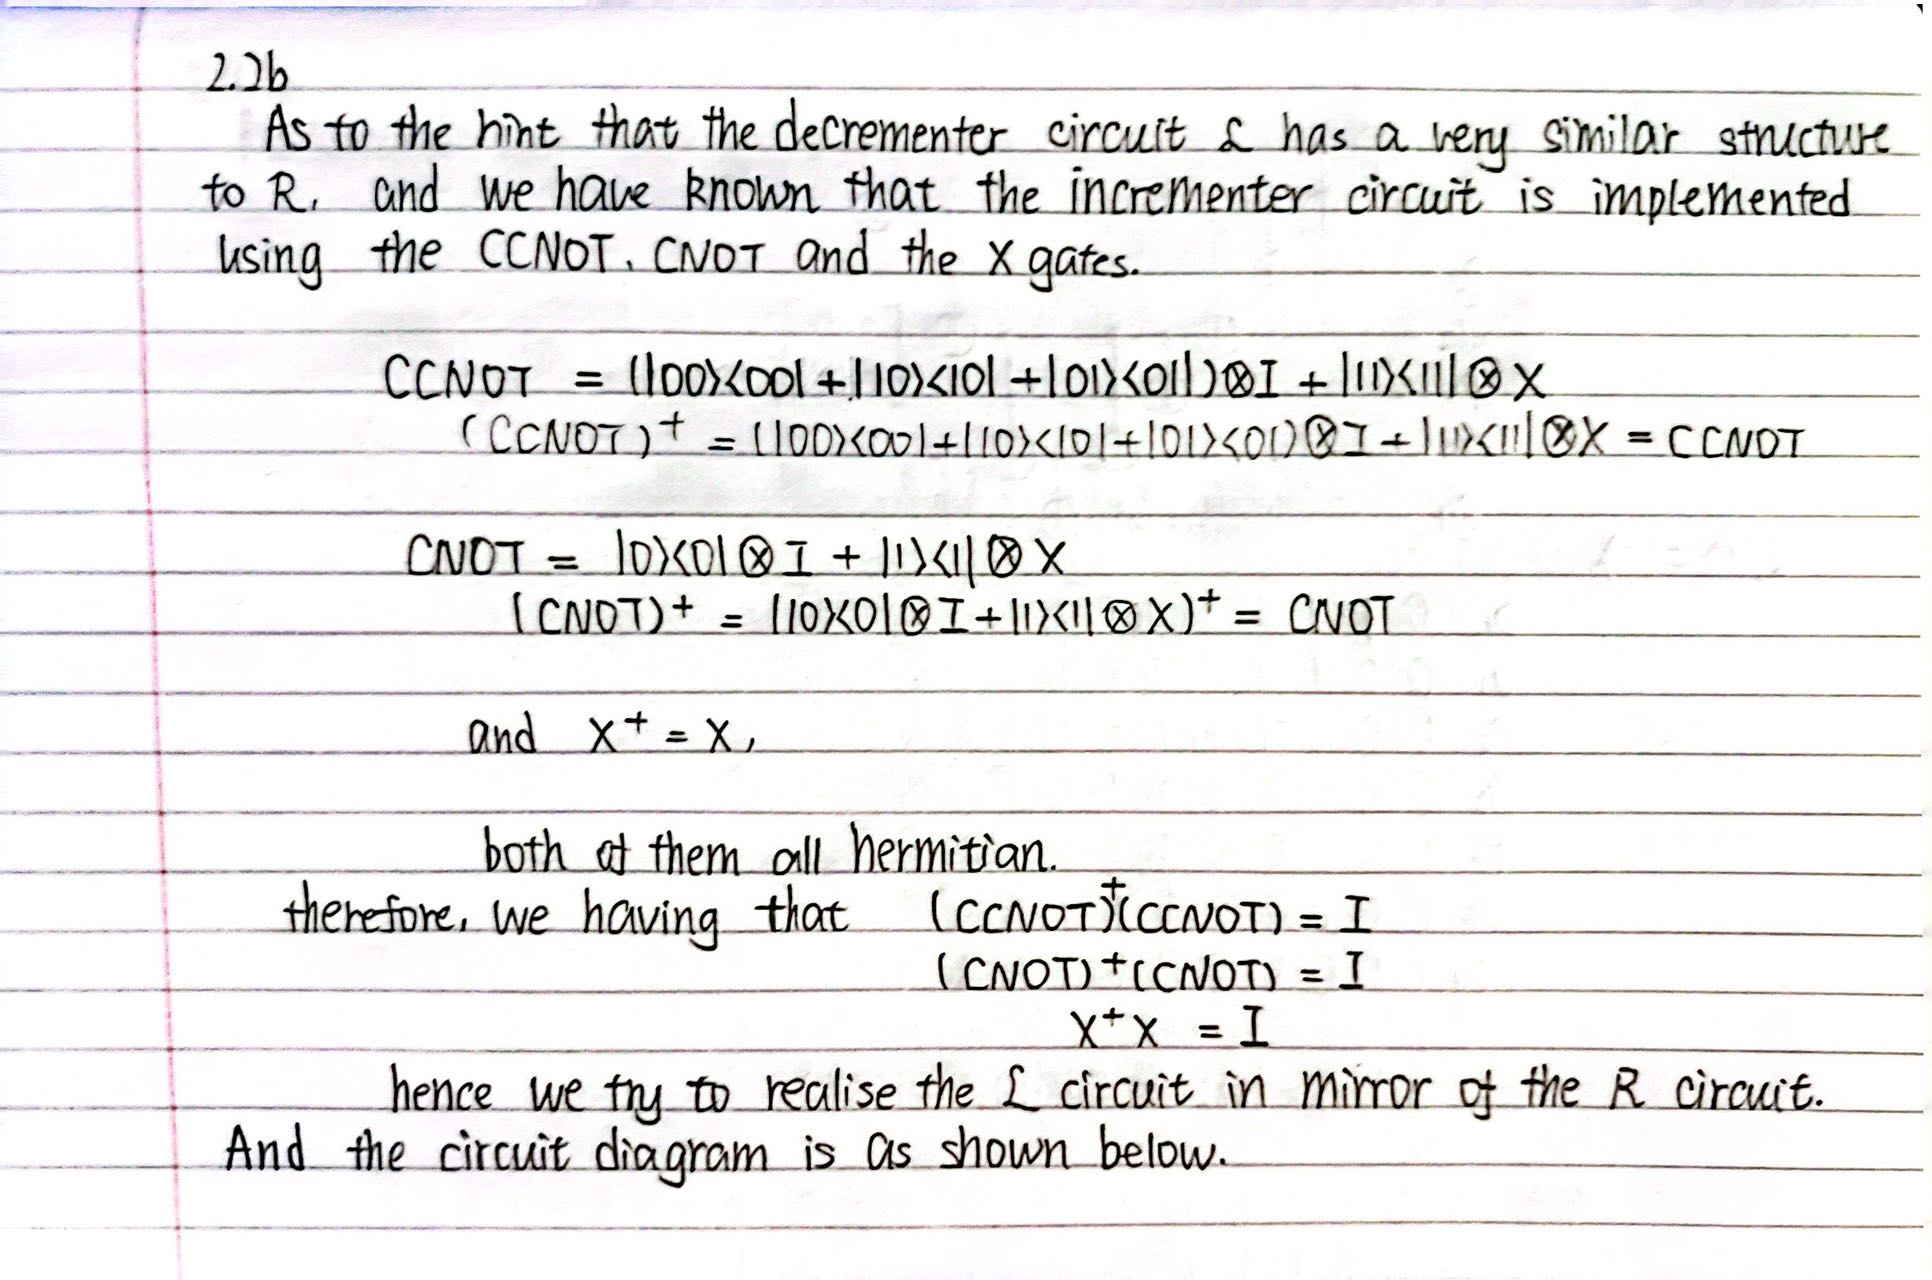 2.2b
As to the hint that the decrementer circuit L has a very similar structure
to R, and we have known that the incrementer circuit is implemented
using the CCNOT, CNOT and the X gates.
CCNOT = (|00><00| + |10><10| + |01><01|)⊗I + |11><11|⊗X
(CCNOT)† = (|00><00|+|10><10|+|01><01|)⊗I+|11><11|⊗X = CCNOT
CNOT = |0><0|⊗I + |1><1|⊗X
(CNOT)† = (|0><0|⊗I+|1><1|⊗X)† = CNOT
and X† = X,
both of them all hermitian.
therefore, we having that (CCNOT)†(CCNOT) = I
(CNOT)†(CNOT) = I
X†X = I
hence we try to realise the L circuit in mirror of the R circuit.
And the circuit diagram is as shown below.